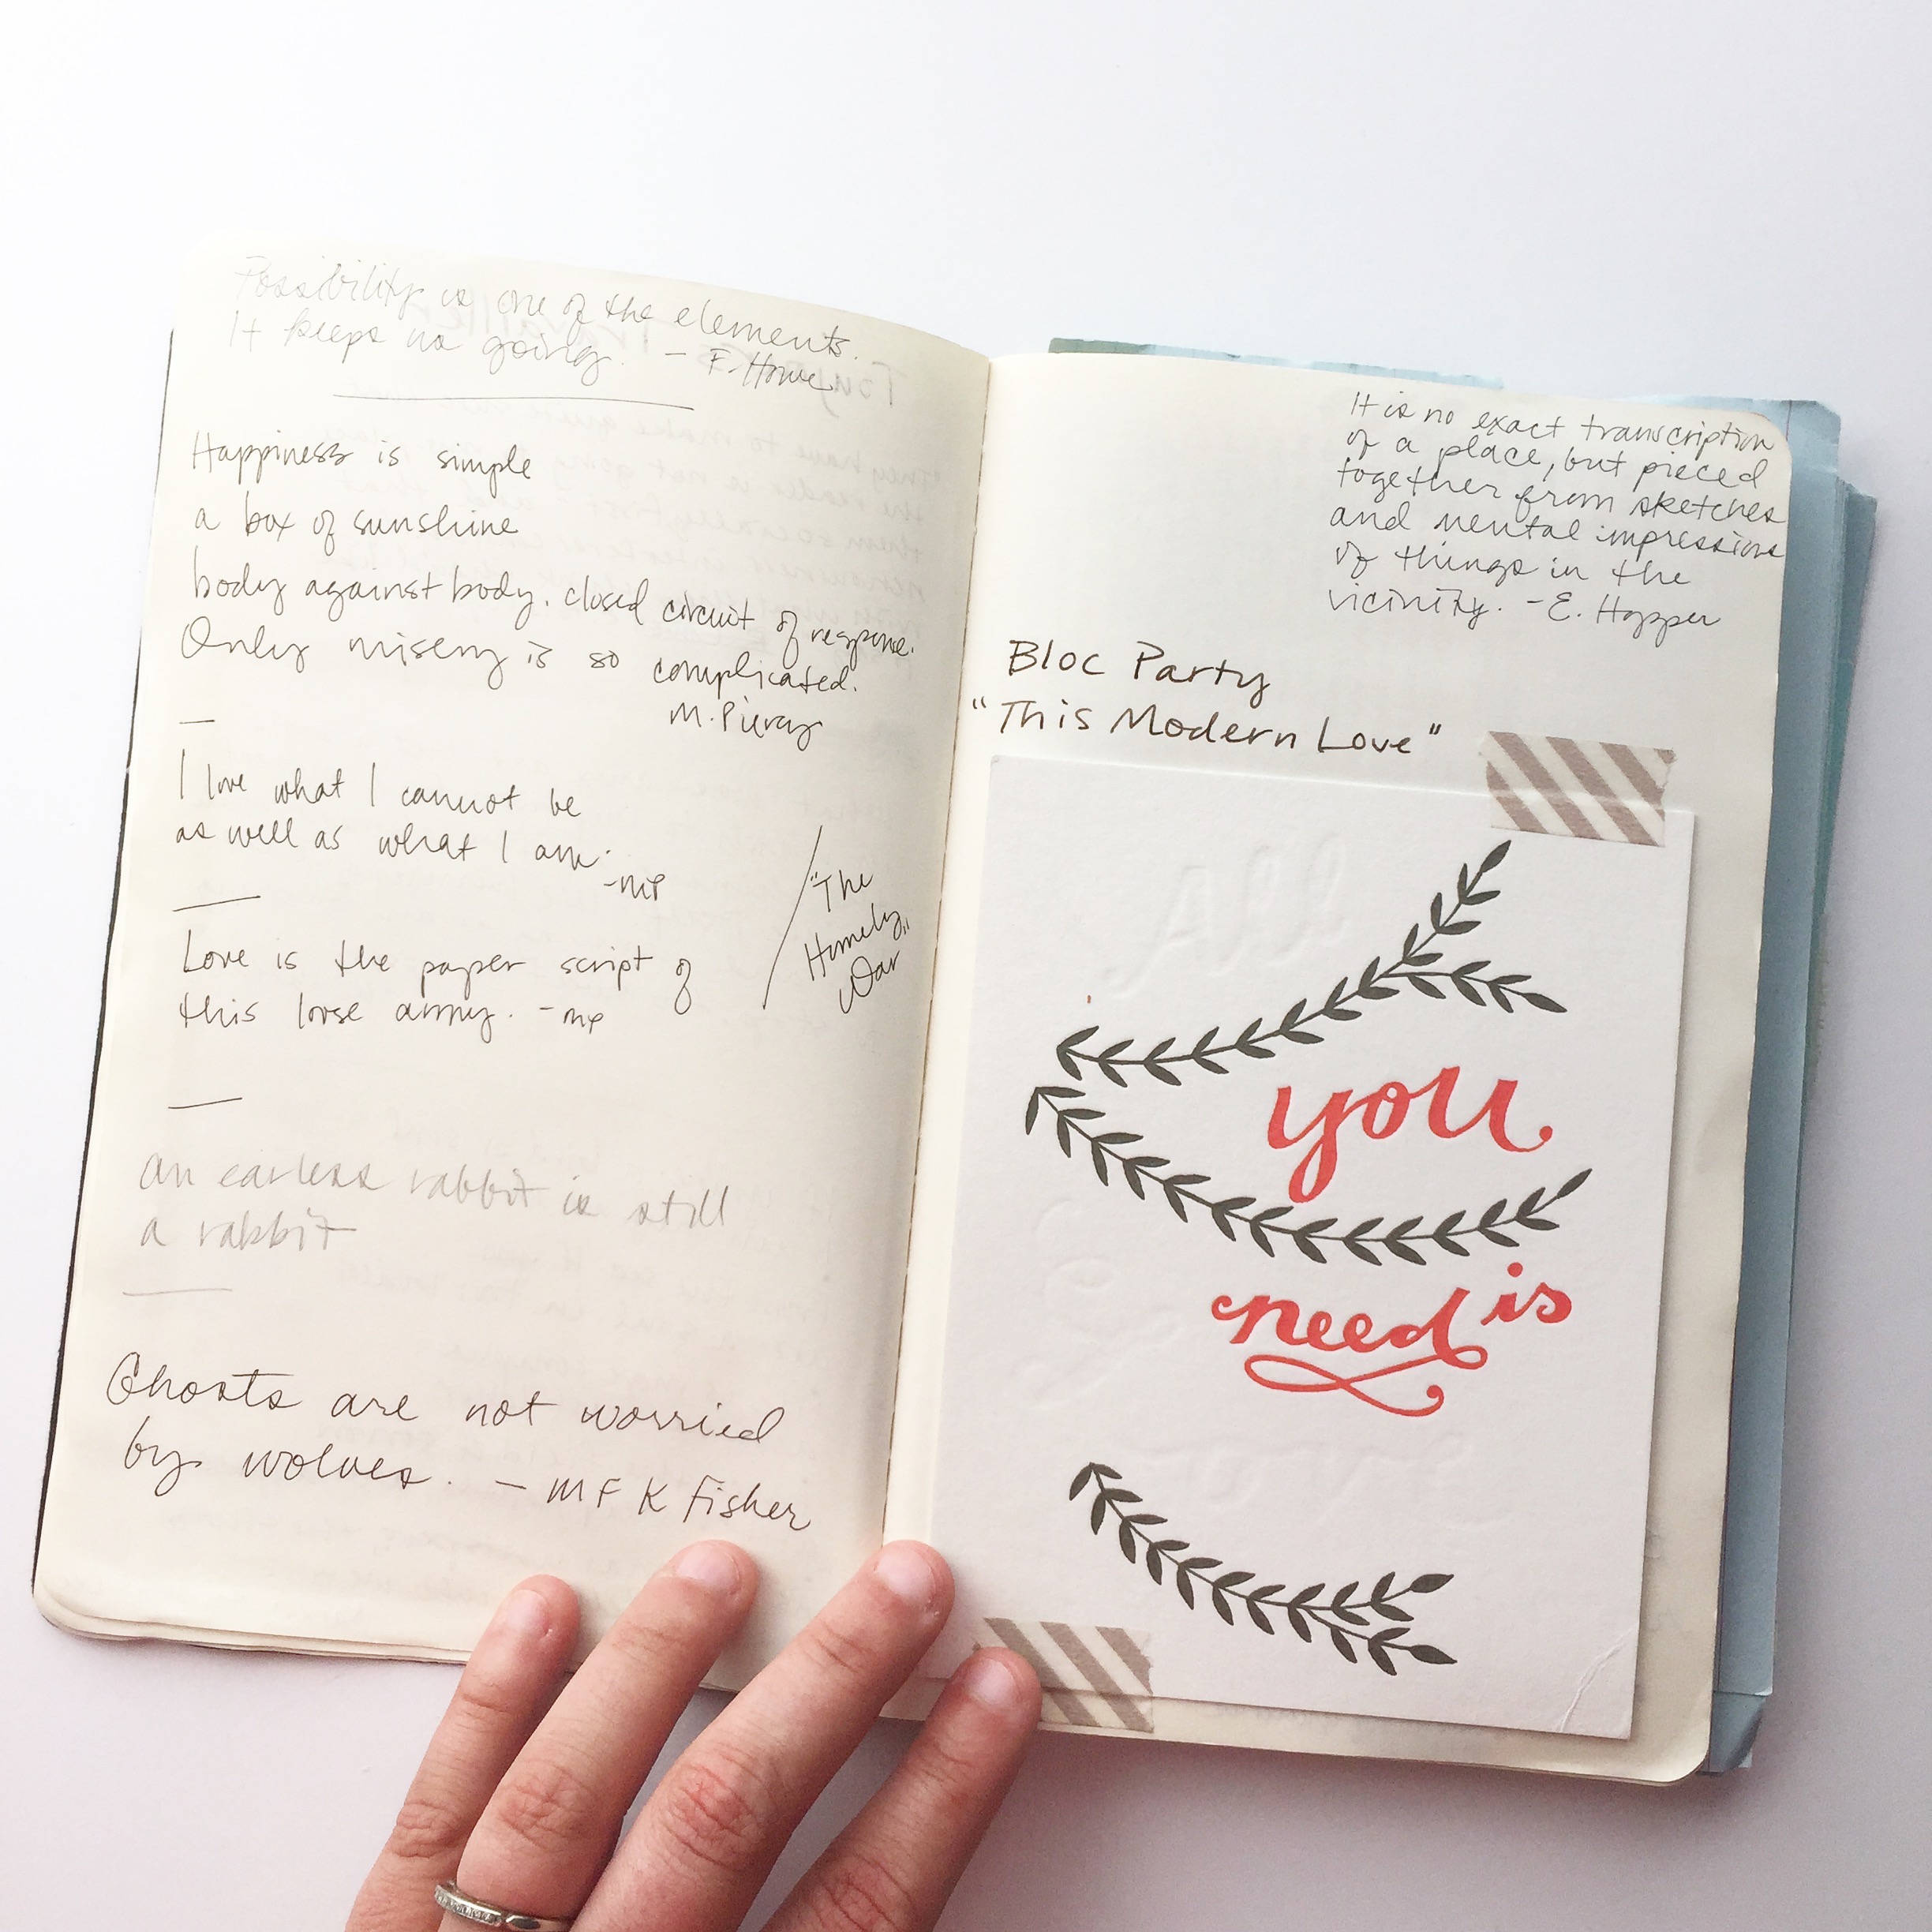 Possibility is one of the elements.
It keeps us going. - F. Howe
Happiness is simple
a box of sunshine
body against body, closed circuit of response.
Only misery is so complicated.
M. Piercy
I love what I cannot be
as well as what I am.
-mp
Love is the paper script of
this loose army. -mp
"The
Homely
War"
an earless rabbit is still
a rabbit
Ghosts are not worried
by wolves. - MFK Fisher
It is no exact transcription
of a place, but pieced
together from sketches
and mental impressions
of things in the
vicinity. -E. Hopper
Bloc Party
"This Modern Love"
All
you
need is